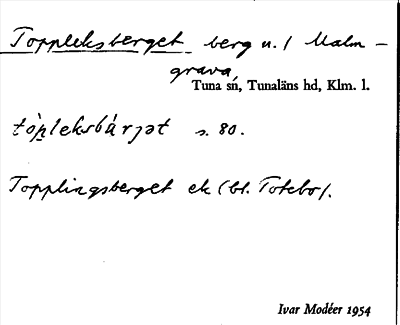 Toppleksberget berg u. / Malm-
grava,
Tuna sn, Tunaläns hd, Klm. l.
tòp̥leksbárjət s. 80.
Topplingsberget ek (bl. Totebo).
Ivar Modéer 1954